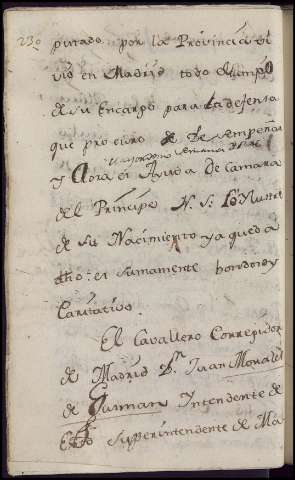 230
putado por la Provincia vi
vio en Madrid todo el tiempo
de su Encargo para la defensa
que procuro de desempeñar
y Aora es Ayuda de Camara
del Principe N. S.
de su Nacimiento ya queda
dho: es sumamente honrado y
Caritativo.
El Cavallero Corregidor
de Madrid Dn. Juan Morales
de Guzman Intendente de
superintendente de Ma